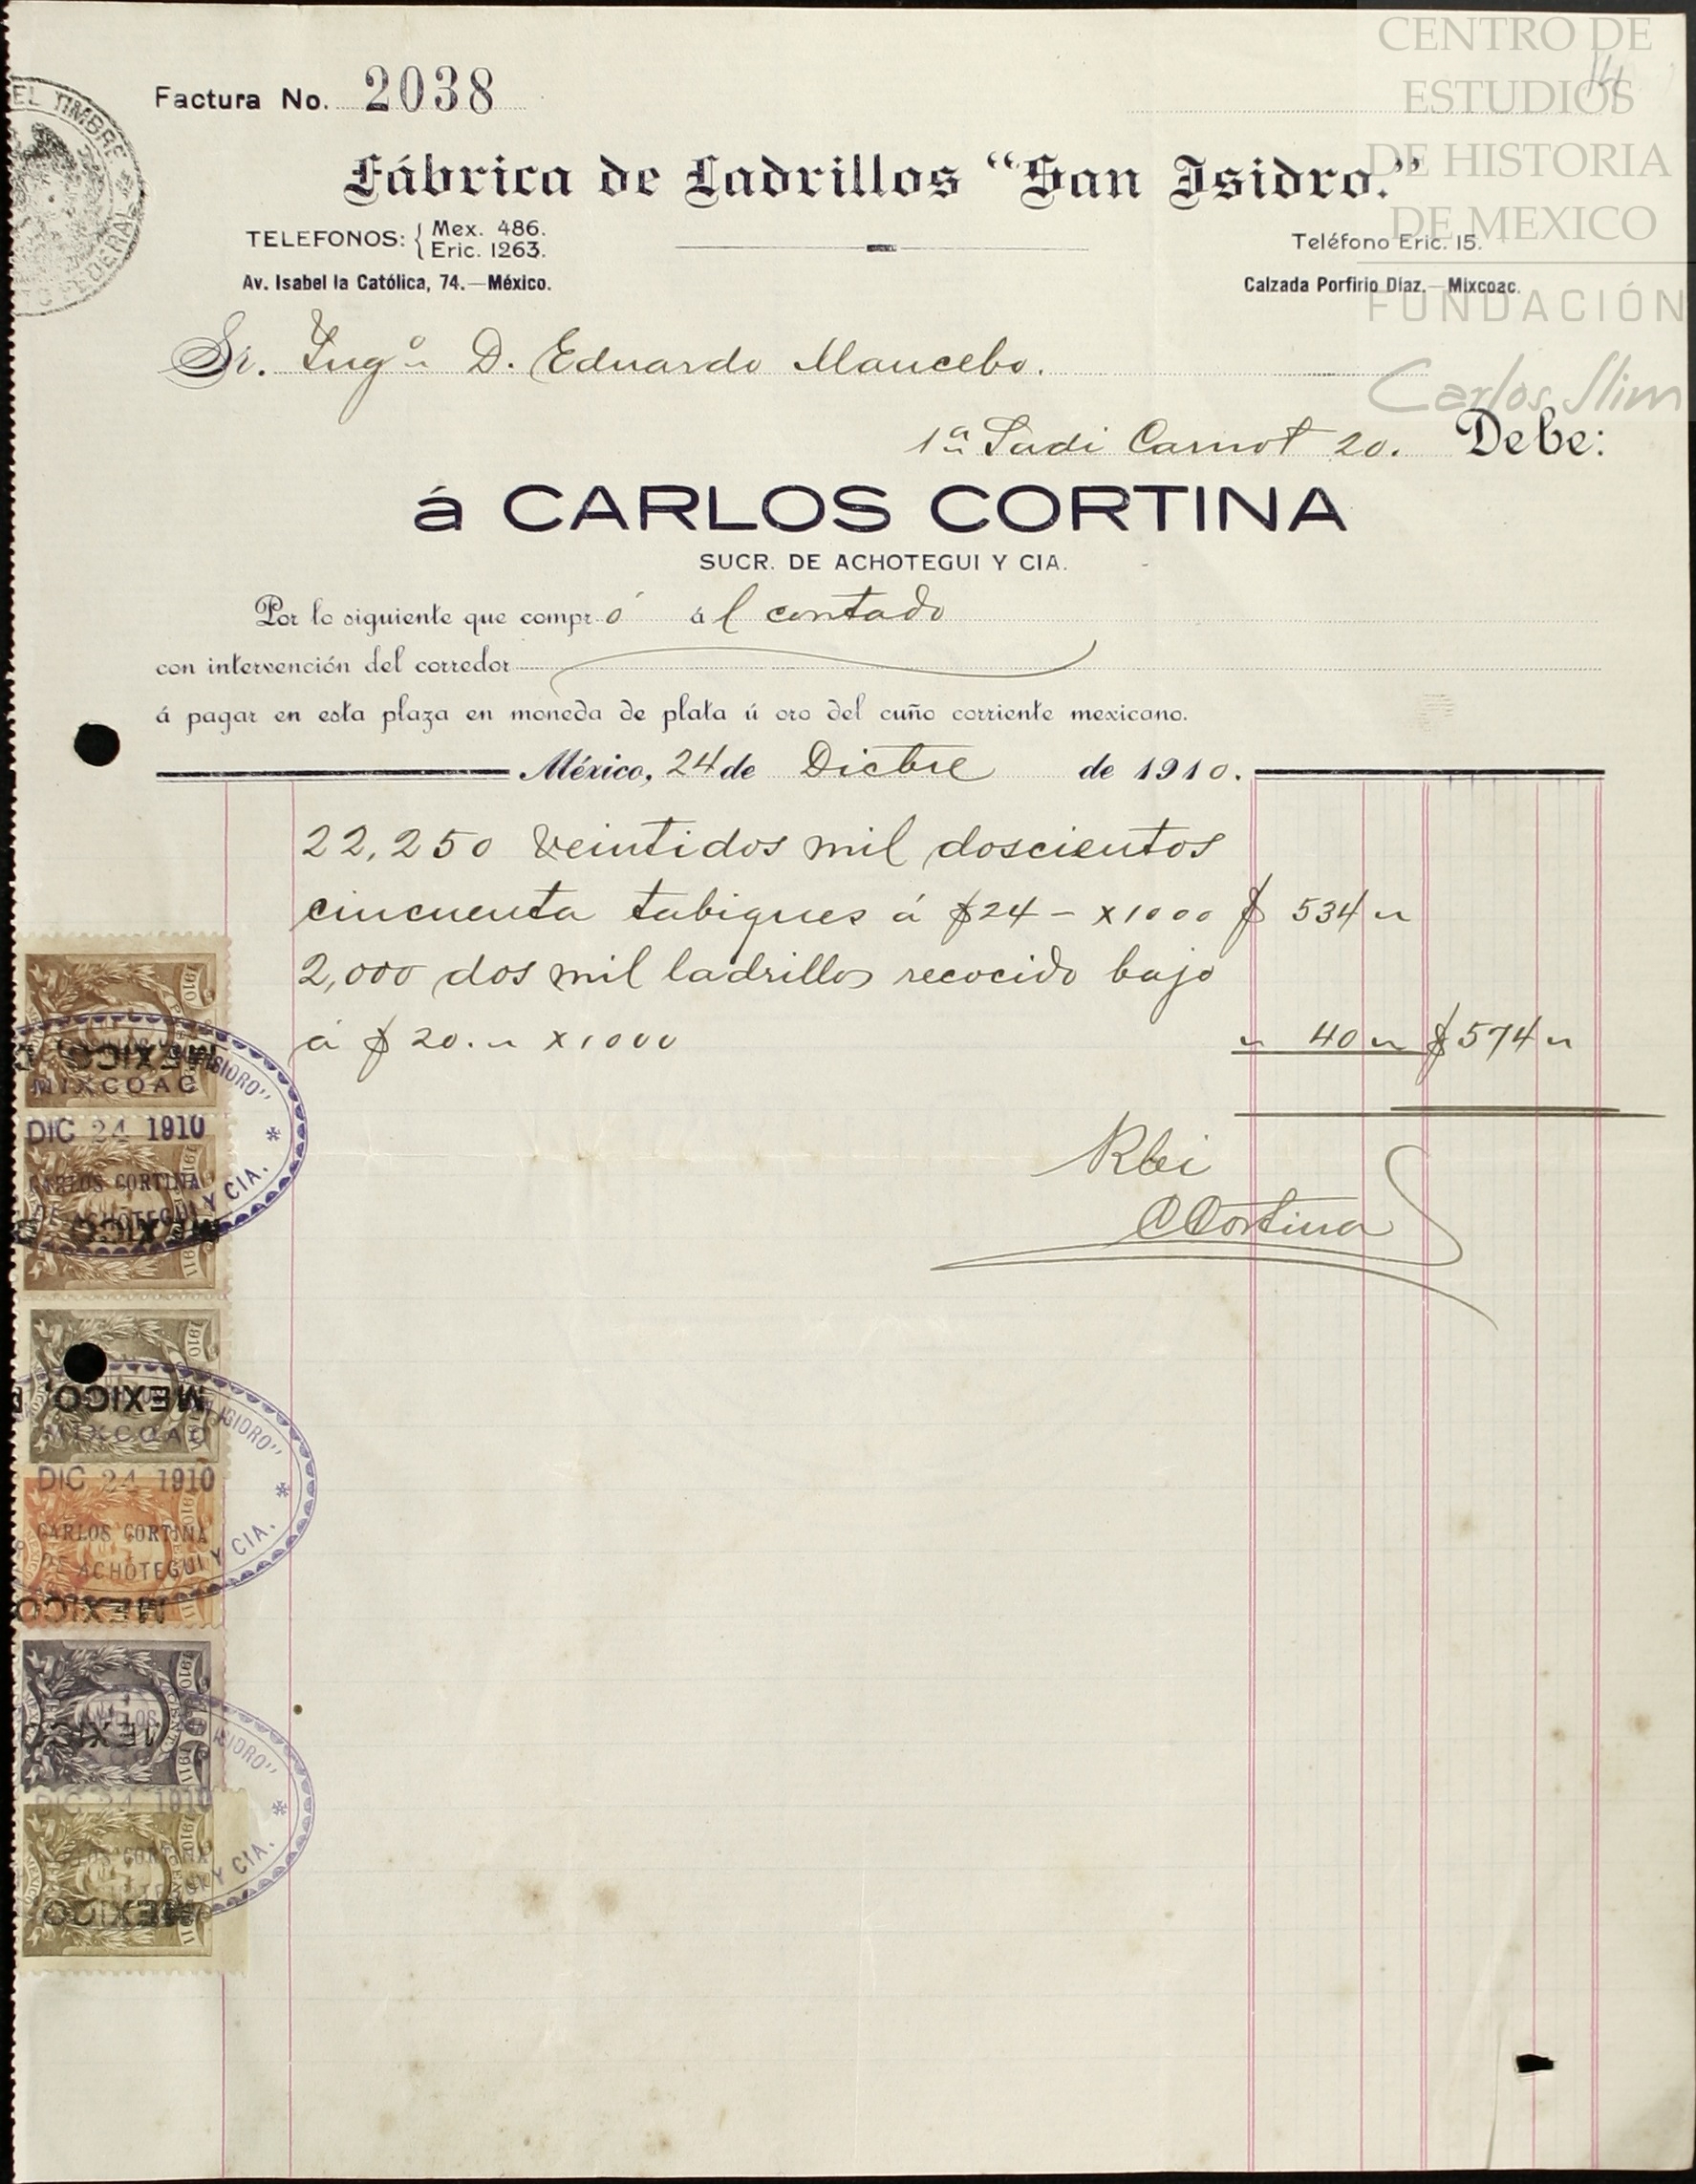 CENTRO DE
ESTUDIOS
DE HISTORIA
DE MEXICO
FUNDACIÓN
Carlos Slim
14
EL TIMBRE
FEDERAL
Factura No. 2038
Fábrica de Ladrillos "San Isidro."
TELEFONOS: { Mex. 486.
Eric. 1263.
Teléfono Eric. 15.
Av. Isabel la Católica, 74.—México.
Calzada Porfirio Díaz.—Mixcoac.
Sr. Ingo D. Eduardo Mancebo.
1a Sadi Carnot 20. Debe:
á CARLOS CORTINA
SUCR. DE ACHOTEGUI Y CIA.
Por lo siguiente que compró ál contado
con intervención del corredor
á pagar en esta plaza en moneda de plata ú oro del cuño corriente mexicano.
México, 24 de Dicbre de 1910.
22,250 veintidos mil doscientos
cincuenta tabiques á $24 - x 1000 $ 534 "
2,000 dos mil ladrillos recocido bajo
á $ 20. " x 1000 " 40 " $ 574 "
Rbi
CCortina
ISIDRO"
MEXICO
MIXCOAC
DIC 24 1910
CARLOS CORTINA
DE ACHOTEGUI Y CIA.
MEXICO
ISIDRO"
MEXICO,
MIXCOAC
DIC 24 1910
CARLOS CORTINA
DE ACHOTEGUI Y CIA.
MEXICO
ISIDRO"
MEXICO
DIC 24 1910
CARLOS CORTINA
Y CIA.
MEXICO